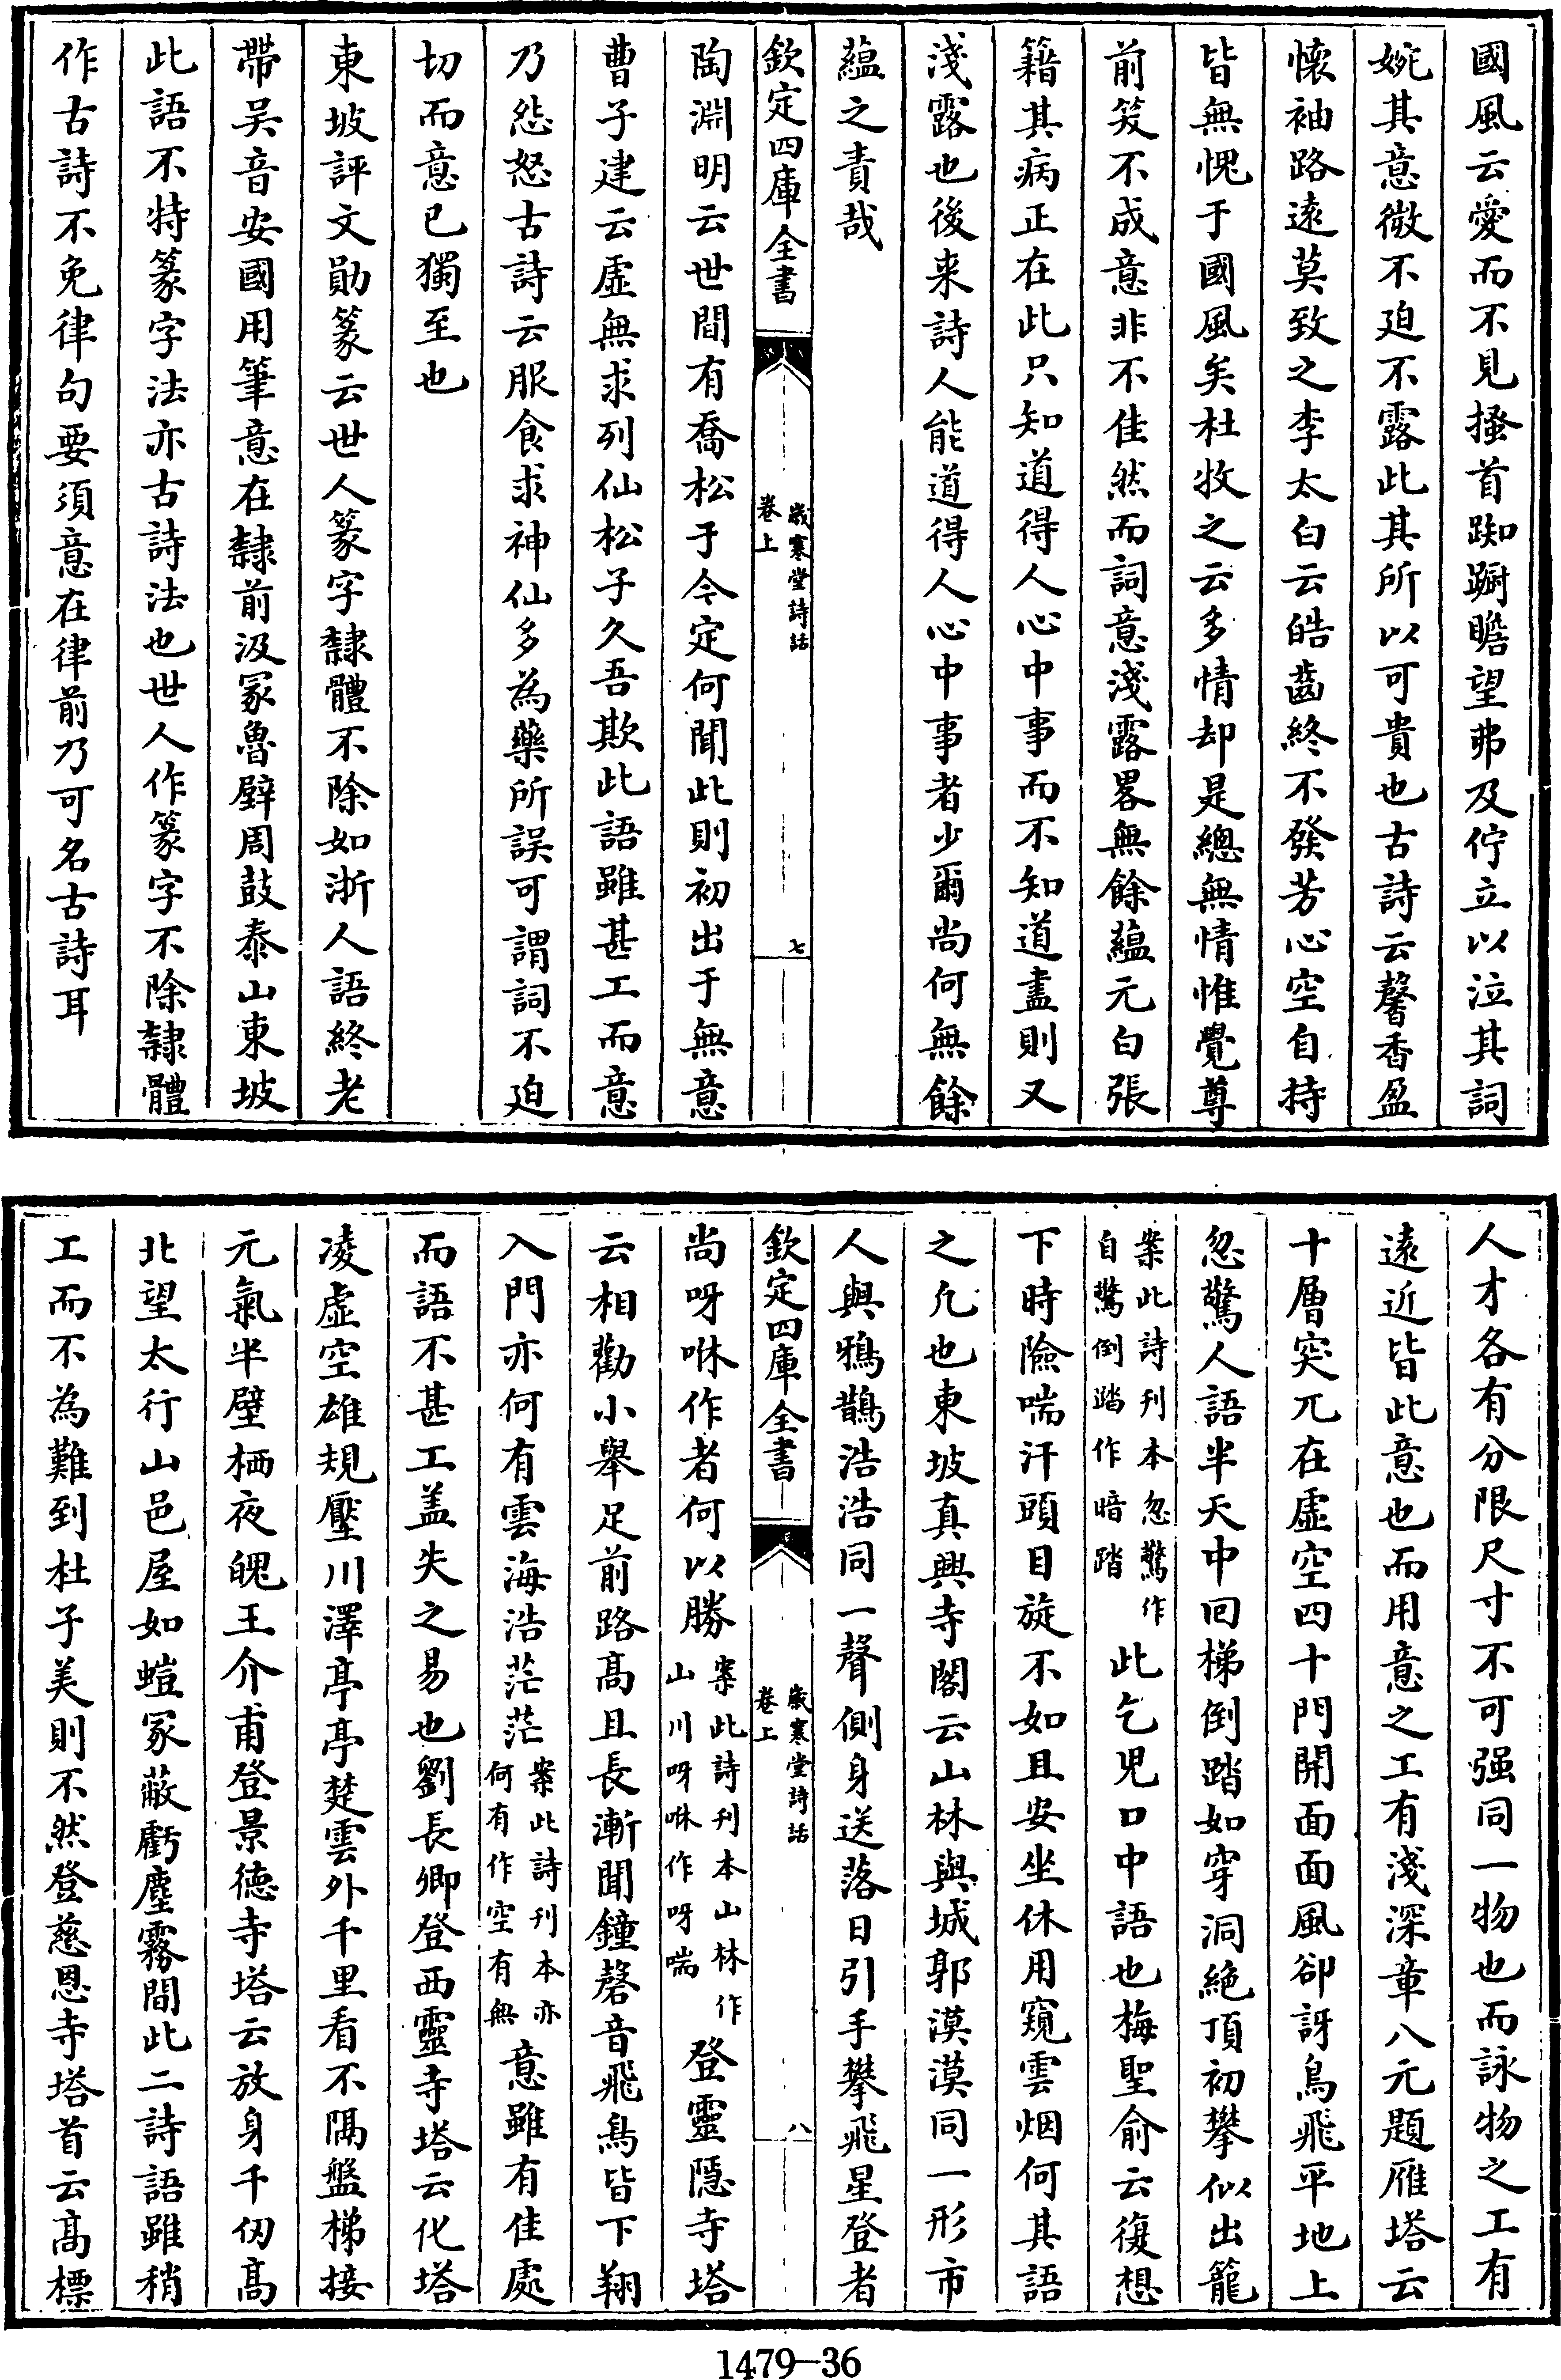 國風云愛而不見搔首踟蹰瞻望弗及佇立以泣其詞
婉其意微不迫不露此其所以可貴也古詩云馨香盈
懷袖路遠莫致之李太白云皓齒終不發芳心空自持
皆無愧于國風矣杜牧之云多情却是總無情惟覺尊
前笑不成意非不佳然而詞意淺露畧無餘蘊元白張
籍其病正在此只知道得人心中事而不知道盡則又
淺露也後来詩人能道得人心中事者少爾尚何無餘
蘊之責哉
欽定四庫全書
歲寒堂詩話
卷上
七
陶淵明云世間有喬松于今定何聞此則初出于無意
曹子建云虛無求列仙松子久吾欺此語雖甚工而意
乃怨怒古詩云服食求神仙多為藥所誤可謂詞不迫
切而意已獨至也
東坡評文勛篆云世人篆字隸體不除如浙人語終老
帶吴音安國用筆意在隸前汲冢魯壁周鼓泰山東坡
此語不特篆字法亦古詩法也世人作篆字不除隸體
作古詩不免律句要須意在律前乃可名古詩耳
人才各有分限尺寸不可强同一物也而詠物之工有
遠近皆此意也而用意之工有淺深章八元題雁塔云
十層突兀在虛空四十門開面面風卻訝鳥飛平地上
忽驚人語半天中回梯倒踏如穿洞絶頂初攀似出籠
案此詩刋本忽驚作
自驚倒踏作暗踏
此乞兒口中語也梅聖俞云復想
下時險喘汗頭目旋不如且安坐休用窺雲烟何其語
之凡也東坡真興寺閣云山林與城郭漠漠同一形市
人與鴉鵲浩浩同一聲側身送落日引手攀飛星登者
欽定四庫全書
歲寒堂詩話
卷上
八
尚呀咻作者何以勝
案此詩刋本山林作
山川呀咻作呀喘
登靈隱寺塔
云相勸小舉足前路高且長漸聞鐘磬音飛鳥皆下翔
入門亦何有雲海浩茫茫
案此詩刋本亦
何有作空有無
意雖有佳處
而語不甚工盖失之易也劉長卿登西靈寺塔云化塔
凌虛空雄規壓川澤亭亭楚雲外千里看不隔盤梯接
元氣半壁栖夜魄王介甫登景德寺塔云放身千仞高
北望太行山邑屋如螘冢蔽虧塵霧間此二詩語雖稍
工而不為難到杜子美則不然登慈恩寺塔首云高標
1479—36